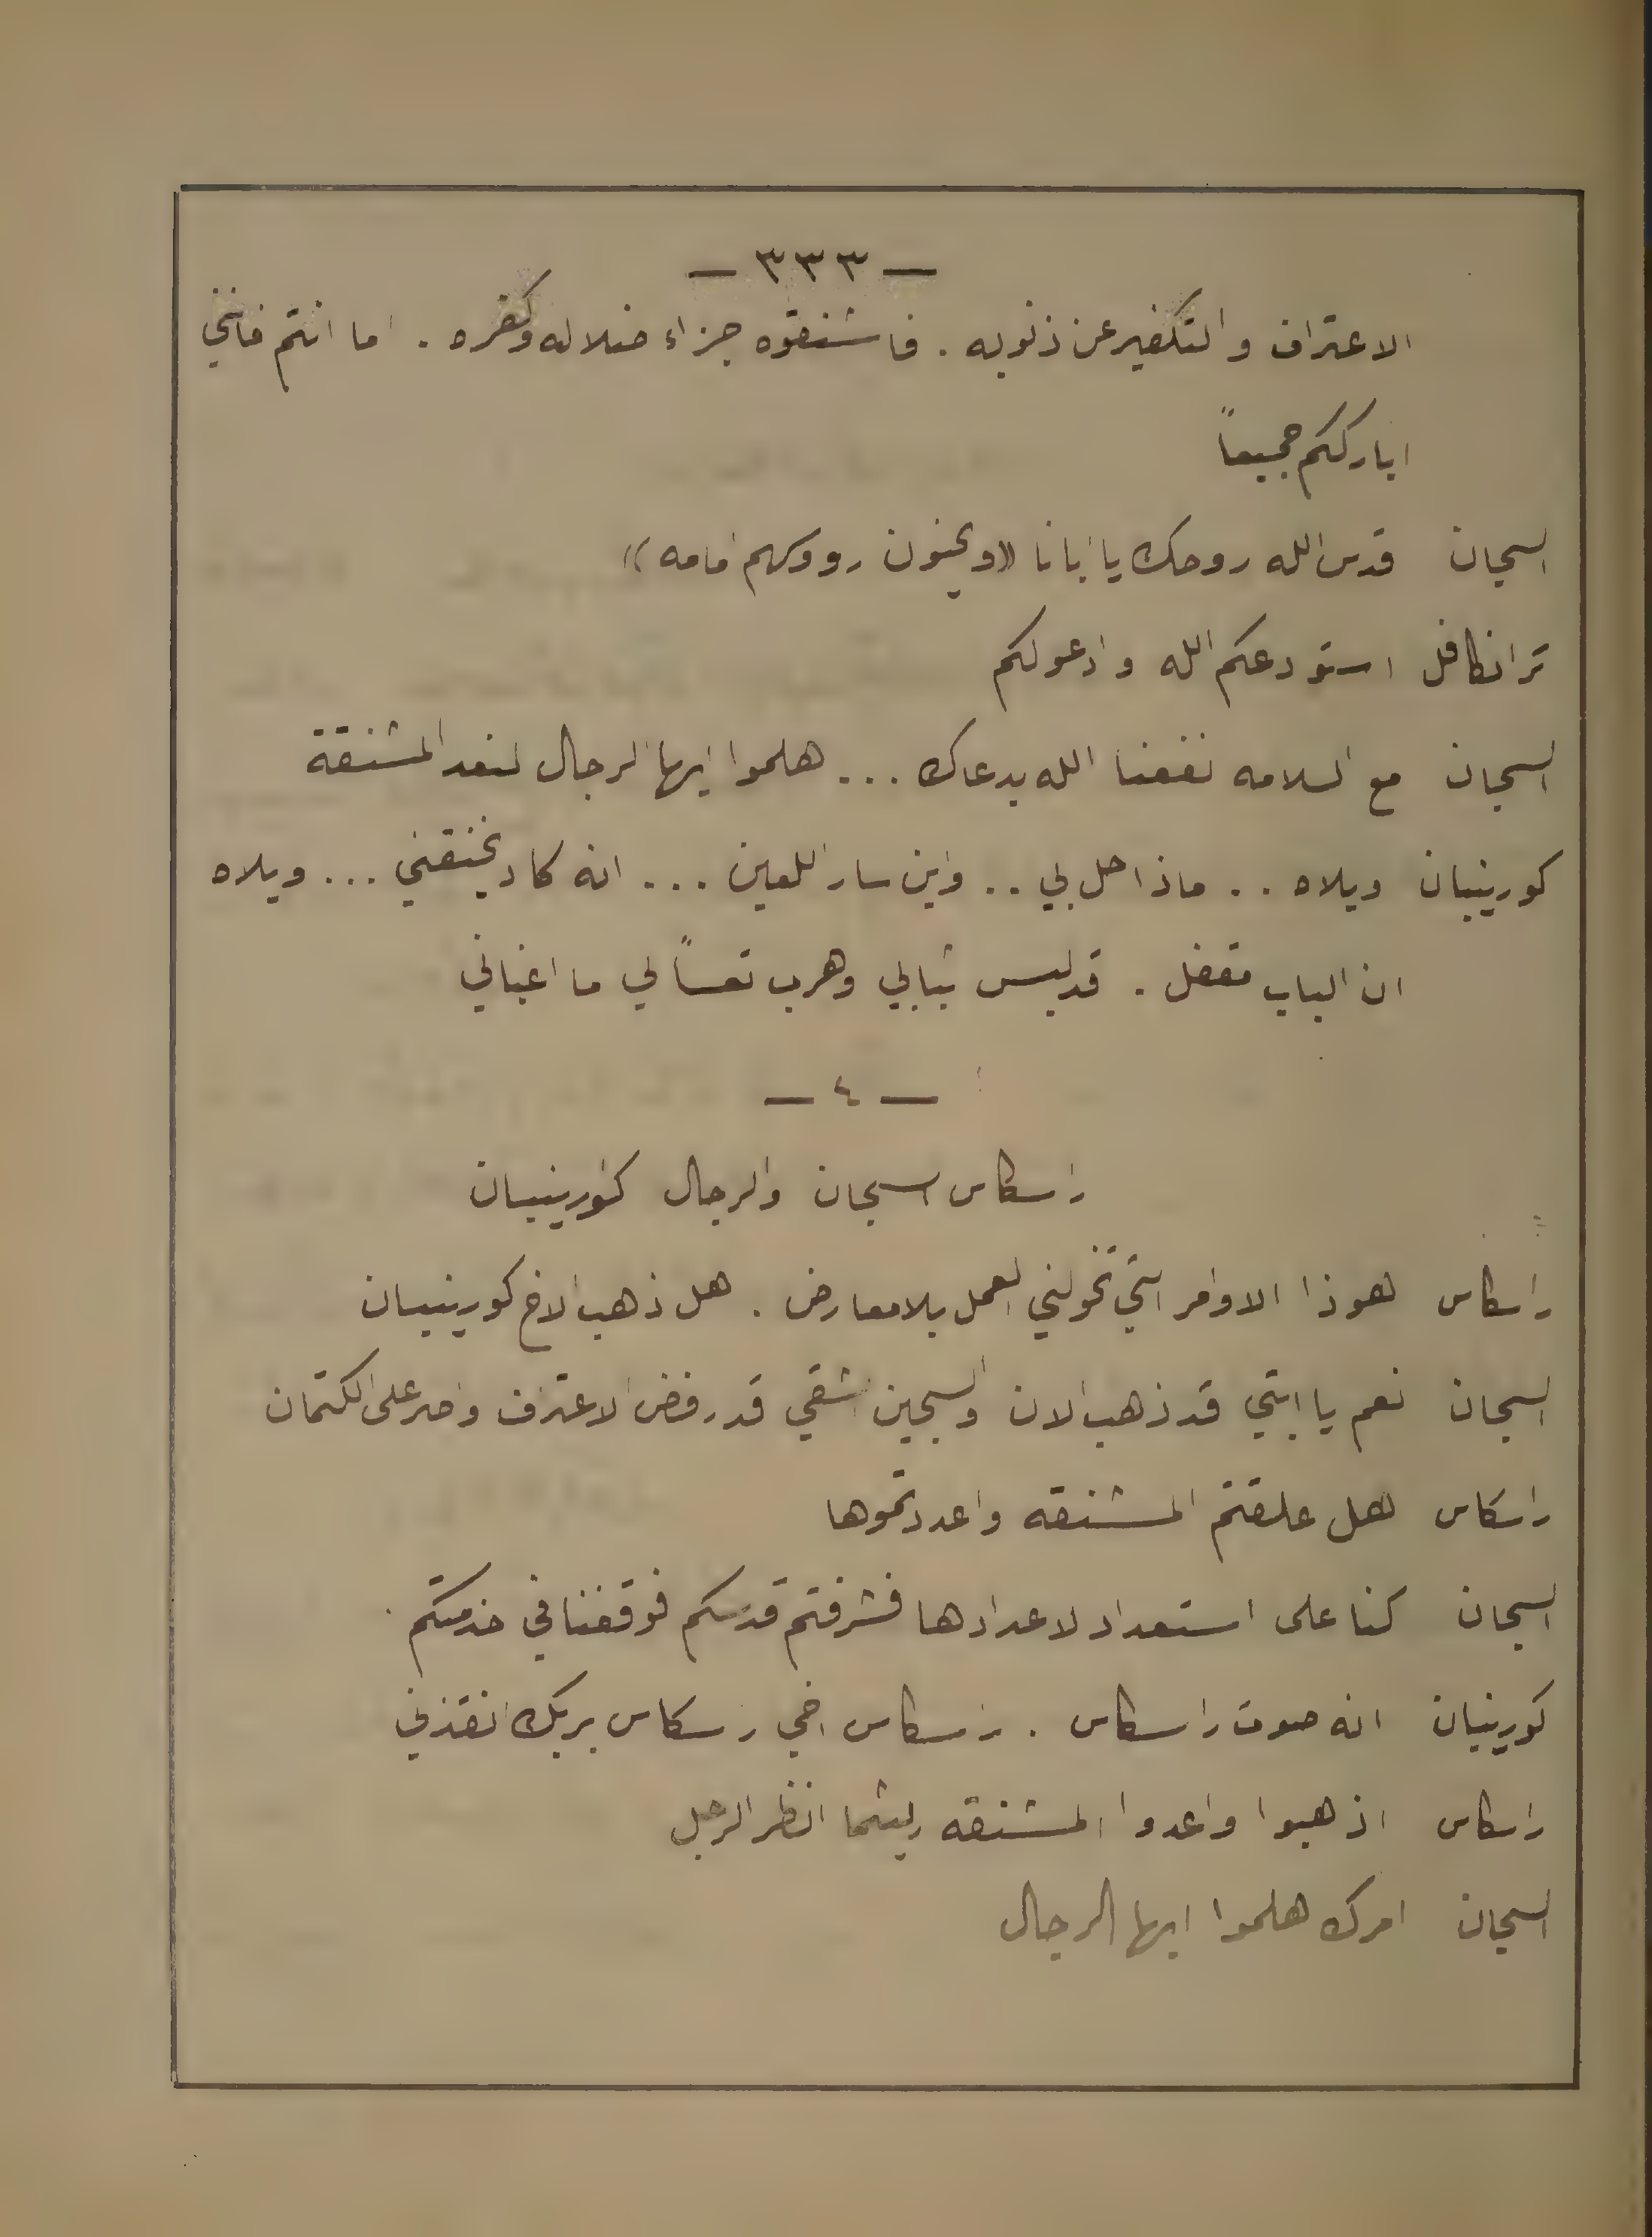 — ٣٣٣ —
الاعتراف والتكفير عن ذنوبه . فاشنقوه جزاء ضلاله وكفره . اما انتم فانني
ابارككم جميعاً
السجان قدس الله روحك يا ابانا ((ويحنون رووسهم امامه))
ترانكافل استودعكم الله وادعولكم
السجان مع السلامه نفعنا الله بدعاك ... هلموا ايها الرجال لنعد المشنقة
كورينيان ويلاه .. ماذا حل بي .. واين سار اللعين ... انه كاد يخنقني ... ويلاه
ان الباب مقفل . قد لبس ثيابي وهرب تعساً لي ما اغباني
— ٤ —
راسكاس السجان والرجال كورينيان
راسكاس هوذا الاوامر التي تخولني العمل بلا معارض . هل ذهب الاخ كورينيان
السجان نعم يا ابتي قد ذهب الان والسجين الشقي قد رفض الاعتراف واصر على الكتمان
راسكاس هل علقتم المشنقه واعددتموها
السجان كنا على استعداد لاعدادها فشرفتم قدسكم فوقفنا في خدمتكم
كورينيان انه صوت راسكاس . راسكاس اخي راسكاس بربك انقذني
راسكاس اذهبوا واعدوا المشنقه ريثما انظر الرجل
السجان امرك هلموا ايها الرجال